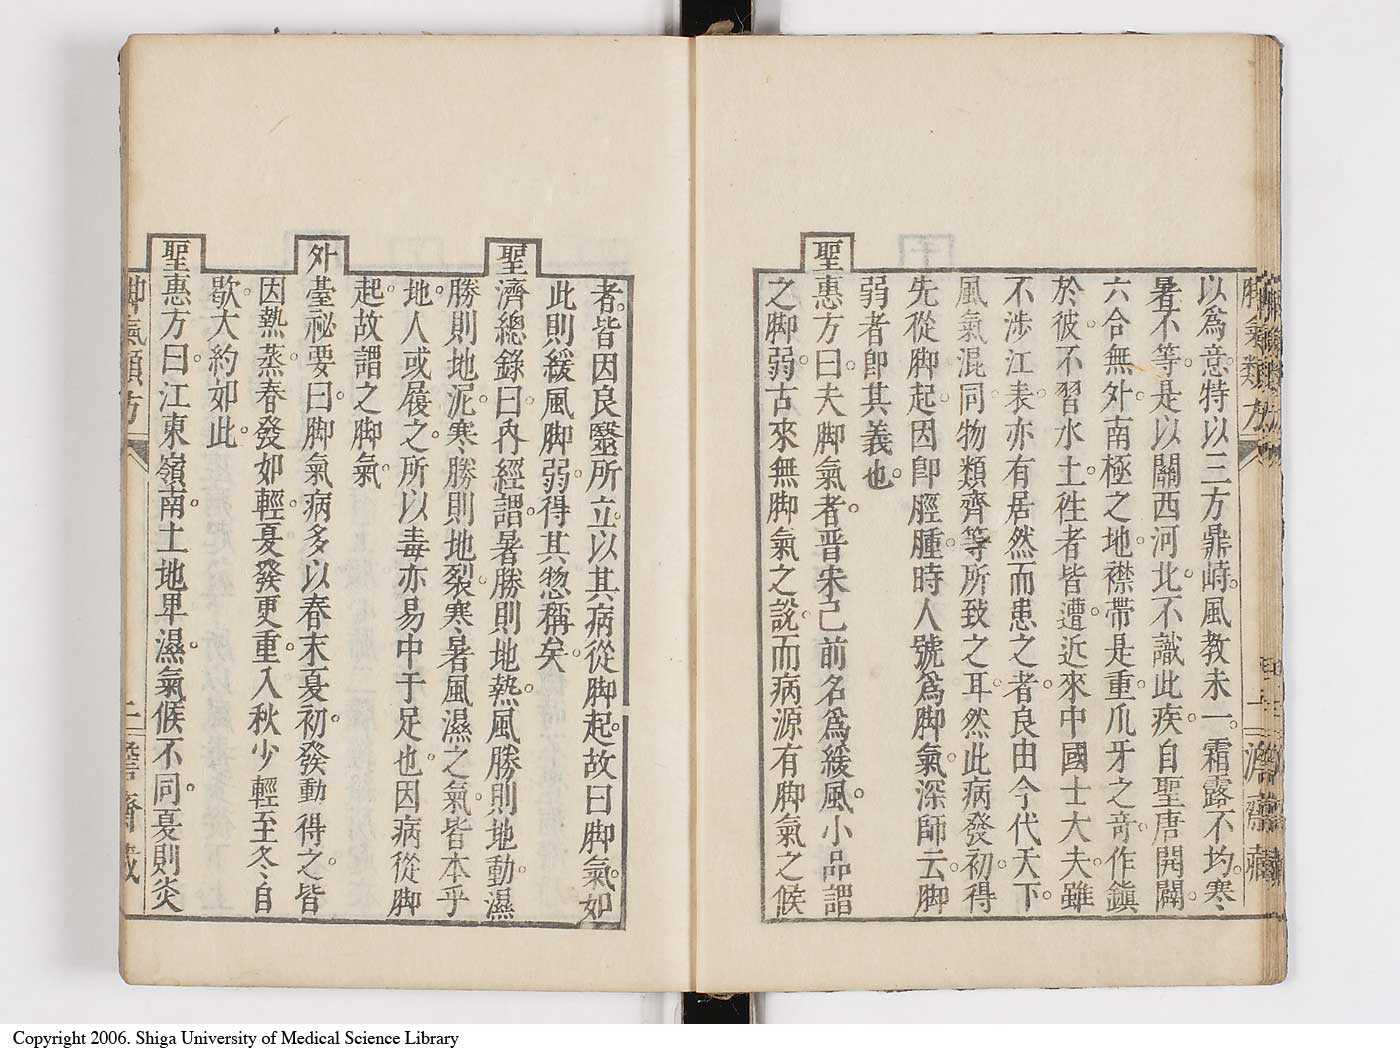 脚氣類方
澹齋藏
以爲意特以三方鼎峙風教未一霜露不均寒
暑不等是以關西河北不識此疾自聖唐開闢
六合無外南極之地襟帶是重爪牙之奇作鎭
於彼不習水土徃者皆遭近來中國士大夫雖
不涉江表亦有居然而患之者良由今代天下
風氣混同物類齊等所致之耳然此病發初得
先從脚起因卽脛腫時人號爲脚氣深師云脚
弱者卽其義也
聖惠方曰夫脚氣者晋宋已前名爲緩風小品謂
之脚弱古來無脚氣之說而病源有脚氣之候
者皆因良毉所立以其病從脚起故曰脚氣如
此則緩風脚弱得其惣稱矣
聖濟總錄曰內經謂暑勝則地熱風勝則地動濕
勝則地泥寒勝則地裂寒暑風濕之氣皆本乎
地人或履之所以毒亦易中于足也因病從脚
起故謂之脚氣
外臺祕要曰脚氣病多以春末夏初發動得之皆
因熱蒸春發如輕夏發更重入秋少輕至冬自
歇大約如此
聖惠方曰江東嶺南土地卑濕氣候不同夏則炎
脚氣類方
二
澹齋藏
Copyright 2006. Shiga University of Medical Science Library